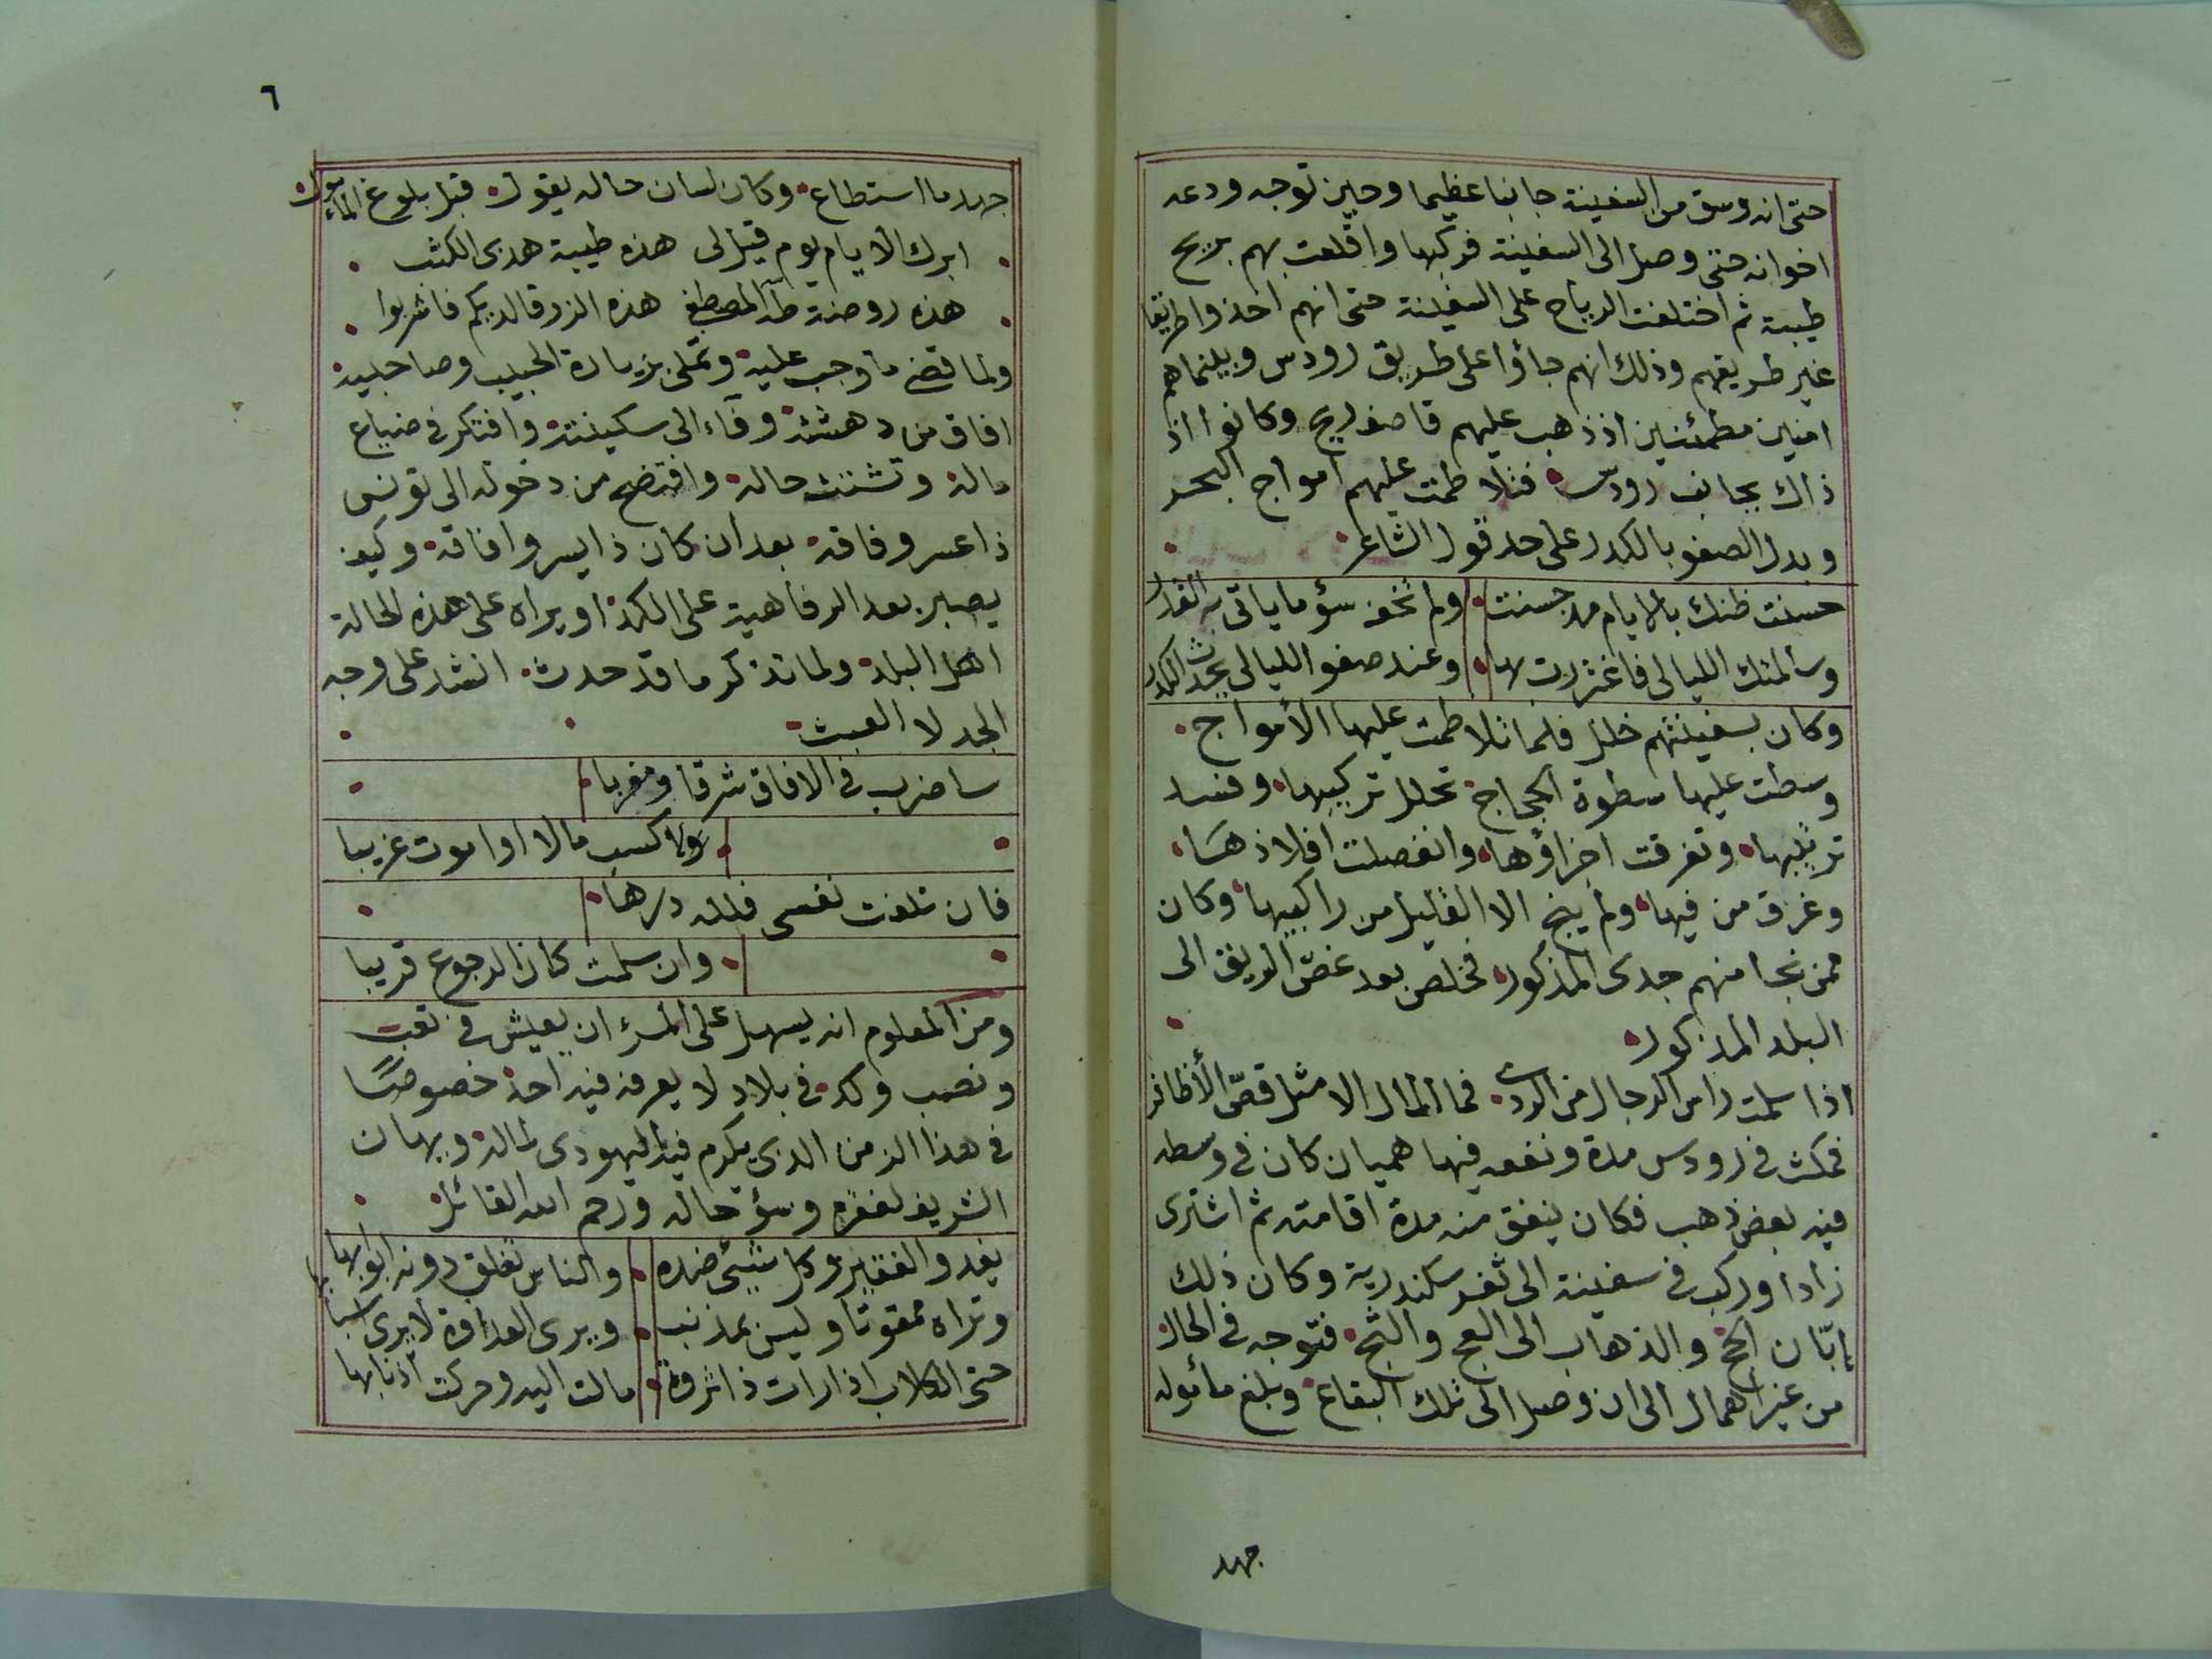 حتى انه وسق من السفينة جانبا عظيما وحين توجه ودعه
اخوانه حتى وصل الى السفينة فركبها واقلعت بهم بريح
طيبة ثم اختلفت الرياح على السفينة حتى انهم اخذوا طريقا
غير طريقهم وذلك انهم جاؤا على طريق رودس وبينما هم
امنين مطمئنين اذ ذهب عليهم قاصف ريح وكانوا اذ
ذاك بجانب رودس فتلاطمت عليهم امواج البحر
وبدل الصفو بالكدر على حد قول الشاعر
حسنت ظنك بالايام مذ حسنت ولم تخف سؤ ما ياتى به القدر
وسالمتك الليالى فاغتررت بها وعند صفو الليالى يحدث الكدر
وكان بسفينتهم خلل فلما تلاطمت عليها الأمواج
وسطت عليها سطوة الحجاج تحلل تركيبها وفسد
ترتيبها وتفرقت اجزاؤها وانفصلت افلاذها
وغرق من فيها ولم ينج الا القليل من راكبيها وكان
ممن نجا منهم جدى المذكور فخلص بعد غصّ الريق الى
البلد المذكور
اذا سلمت راس الرجال من الردى فما المال الا مثل قصّ الأظافر
فمكث فى رودس مدة ونفعه فيها هميان كان فى وسطه
فيه بعض ذهب فكان ينفق منه مدة اقامته ثم اشترى
زادا وركب فى سفينة الى ثغر سكندرية وكان ذلك
إبّان الحج والذهاب الى العج والثج فتوجه فى الحال
من غير اهمال الى ان وصل الى تلك البقاع وبلغ مأموله
جهد
٦
جهد ما استطاع وكان لسان حاله يقول قبل بلوغ المأمول
ابرك الايام يوم قيل لى هذه طيبة هدى الكثب
هذه روضة طه المصطفى هذه الزرقا لديكم فاشربوا
ولما قضى ما وجب عليه وتملى بزيارة الحبيب وصاحبيه
افاق من دهشته وفاء الى سكينته وافتكر فى ضياع
ماله وتشتت حاله وافتضح من دخوله الى تونس
ذا عسر وفاقه بعد ان كان ذا يسر وافاقه وكيف
يصبر بعد الرفاهية على الكمد او يراه على هذه الحالة
اهل البلد ولما تذكر ما قد حدث انشد على وجه
الجد لا العبث
ساضرب فى الافاق شرقا ومغربا
واكسب مالا او اموت غريبا
فان تلفت نفسى فلله درها
وان سلمت كان الرجوع قريبا
ومن المعلوم انه يسهل على المرء ان يعيش فى تعب
ونصب وكد فى بلاد لا يعرفه فيه احد خصوصًا
فى هذا الزمن الذى يكرم فيه اليهودى لماله ويهان
الشريف لفقره وسؤ حاله ورحم الله القائل
يغدو الفقير وكل شيئ ضده والناس تغلق دونه ابوابها
وتراه ممقوتا وليس بمذنب ويرى العداوة لا يرى اسبابها
حتى الكلاب اذا رات ذا ثروة مالت اليه وحركت اذنابها